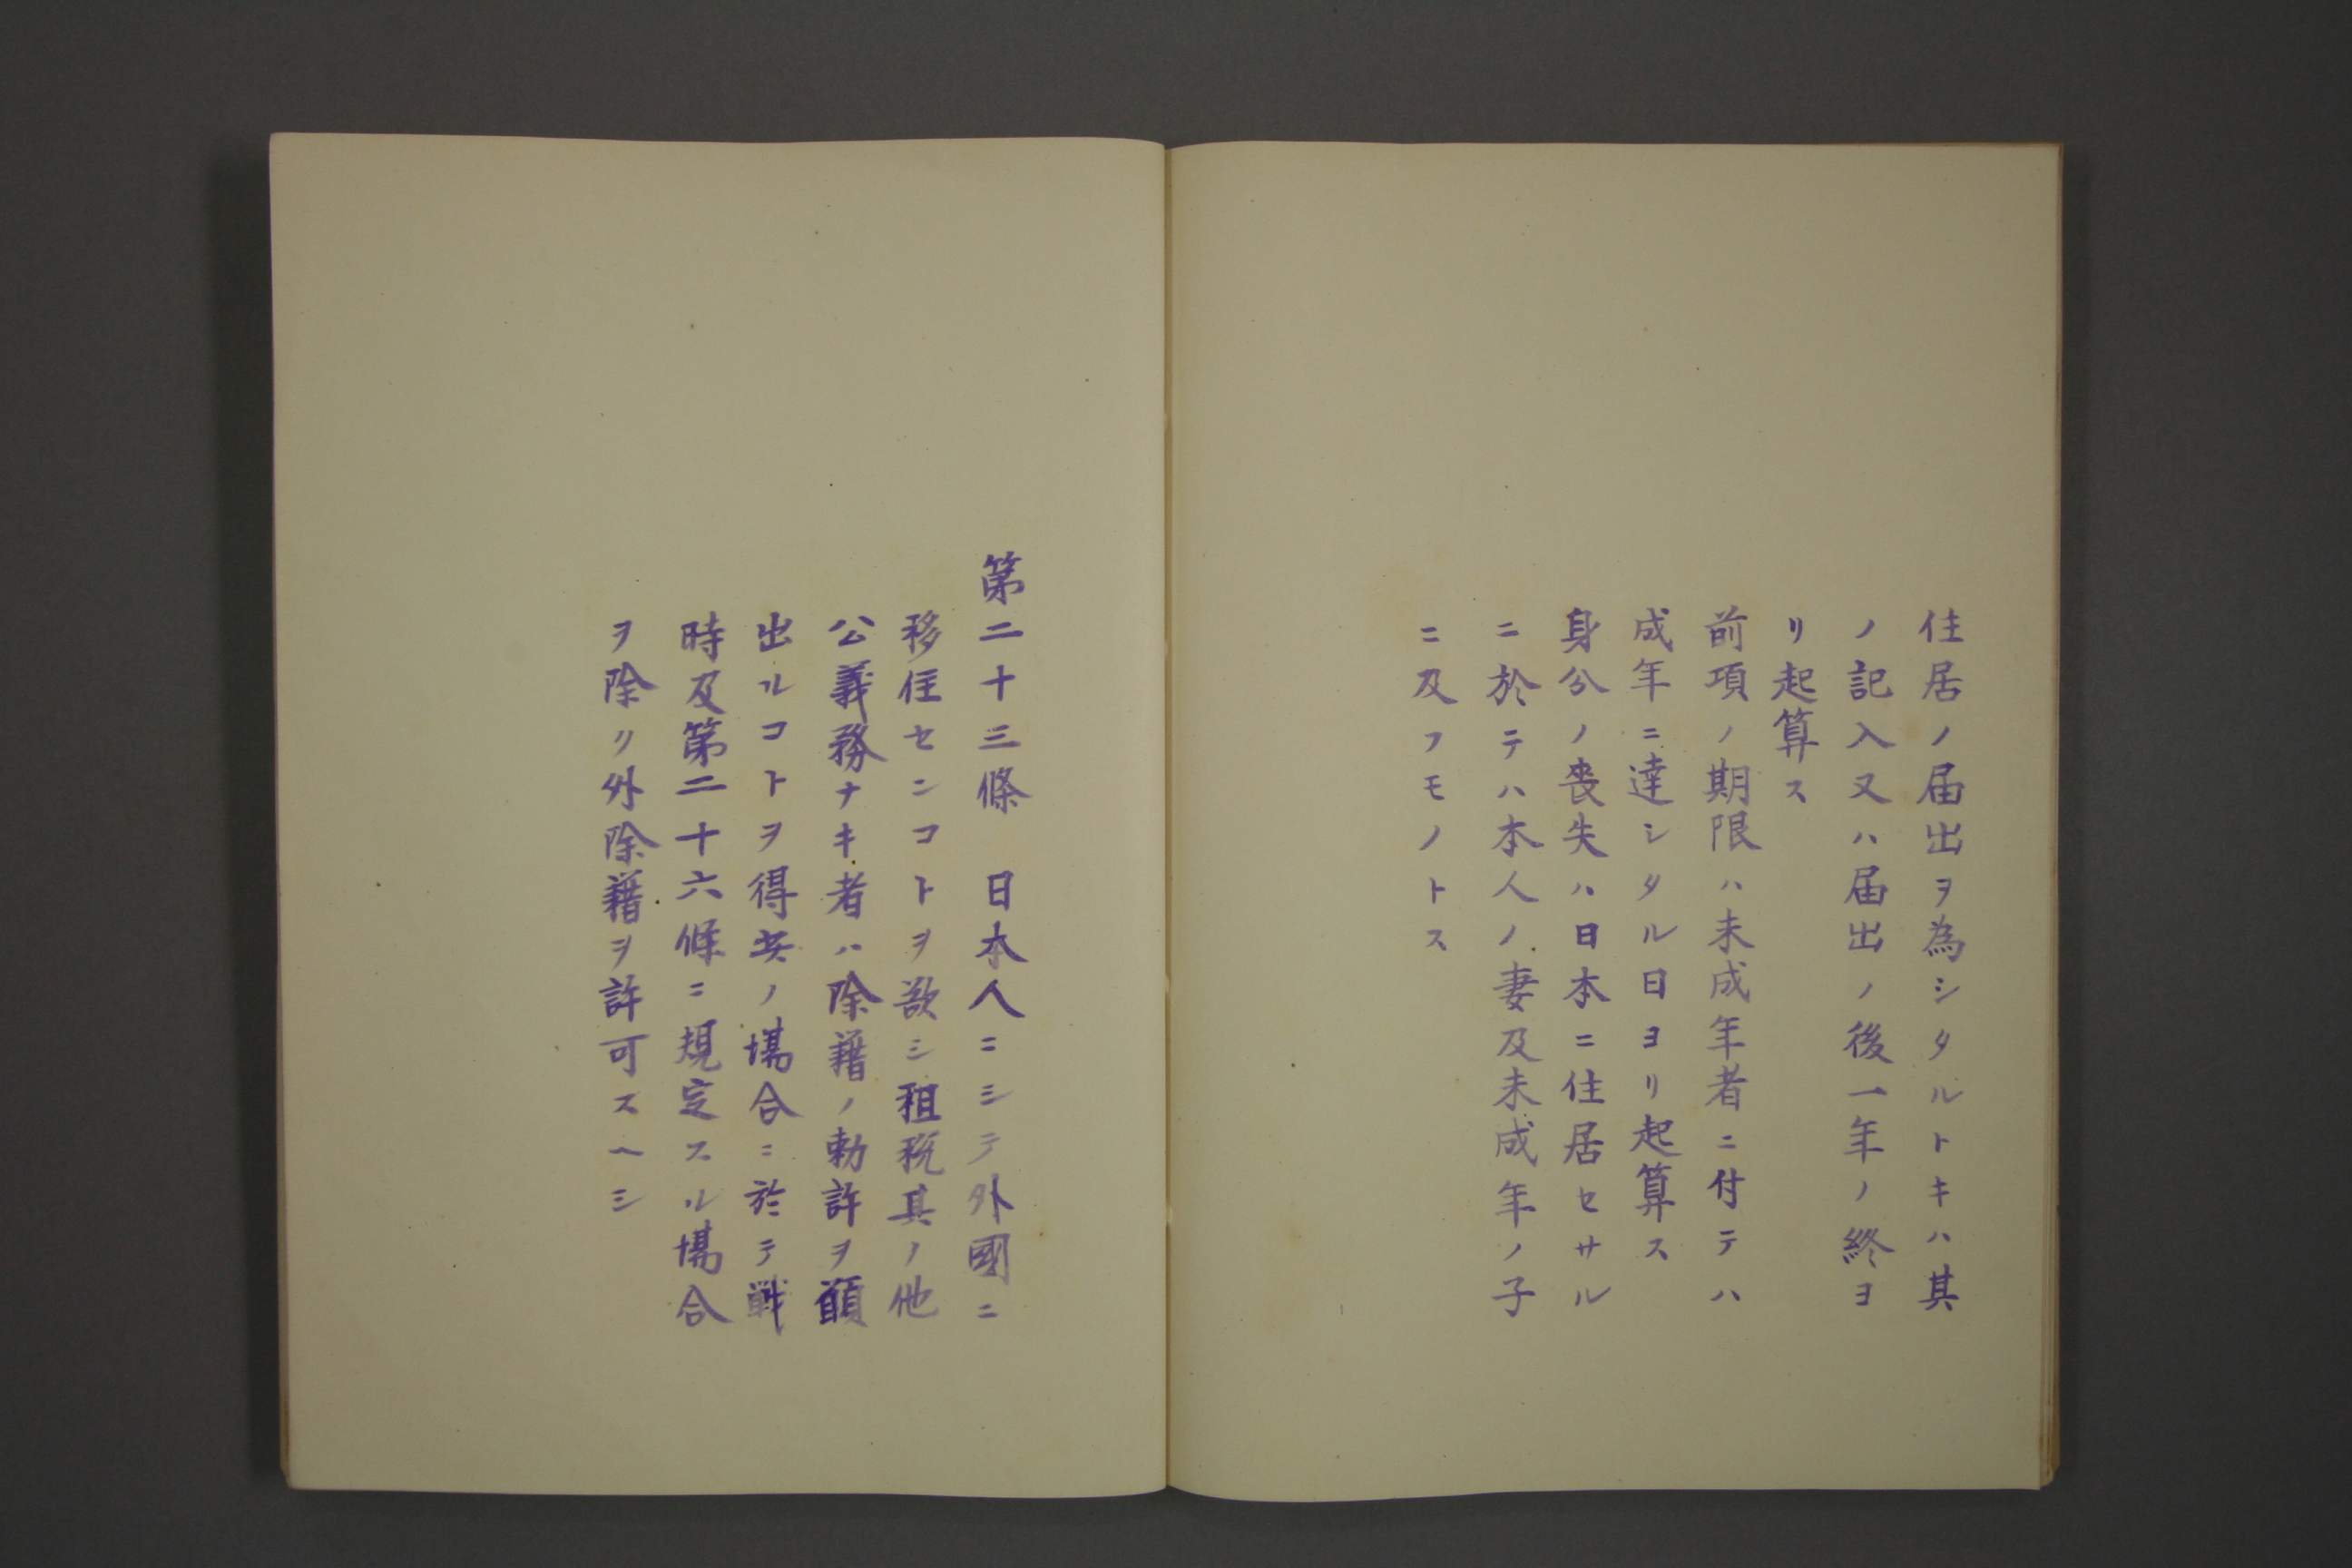 住居ノ届出ヲ為シタルトキハ其
ノ記入又ハ届出ノ後一年ノ終ヨ
リ起算ス
前項ノ期限ハ未成年者ニ付テハ
成年ニ達シタル日ヨリ起算ス
身分ノ喪失ハ日本ニ住居セサル
ニ於テハ本人ノ妻及未成年ノ子
ニ及フモノトス
第二十三條　日本人ニシテ外國ニ
移住センコトヲ欲シ租税其ノ他
公義務ナキ者ハ除籍ノ勅許ヲ願
出ルコトヲ得其ノ場合ニ於テ戦
時及第二十六條ニ規定スル場合
ヲ除リ外除籍ヲ許可スヘシ